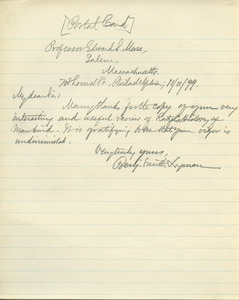 [Postal Card]
Professor Edward S. Morse,
Salem,
Massachusetts.
708 Locust St., Philadelphia, 10/11/99.
My dear Sir:
Many thanks for the copy of your very
interesting and useful review of Ratzel's History of
Mankind. It is gratifying to see that your vigor is
undiminished.
Very truly yours,
Benj. Smith Lyman